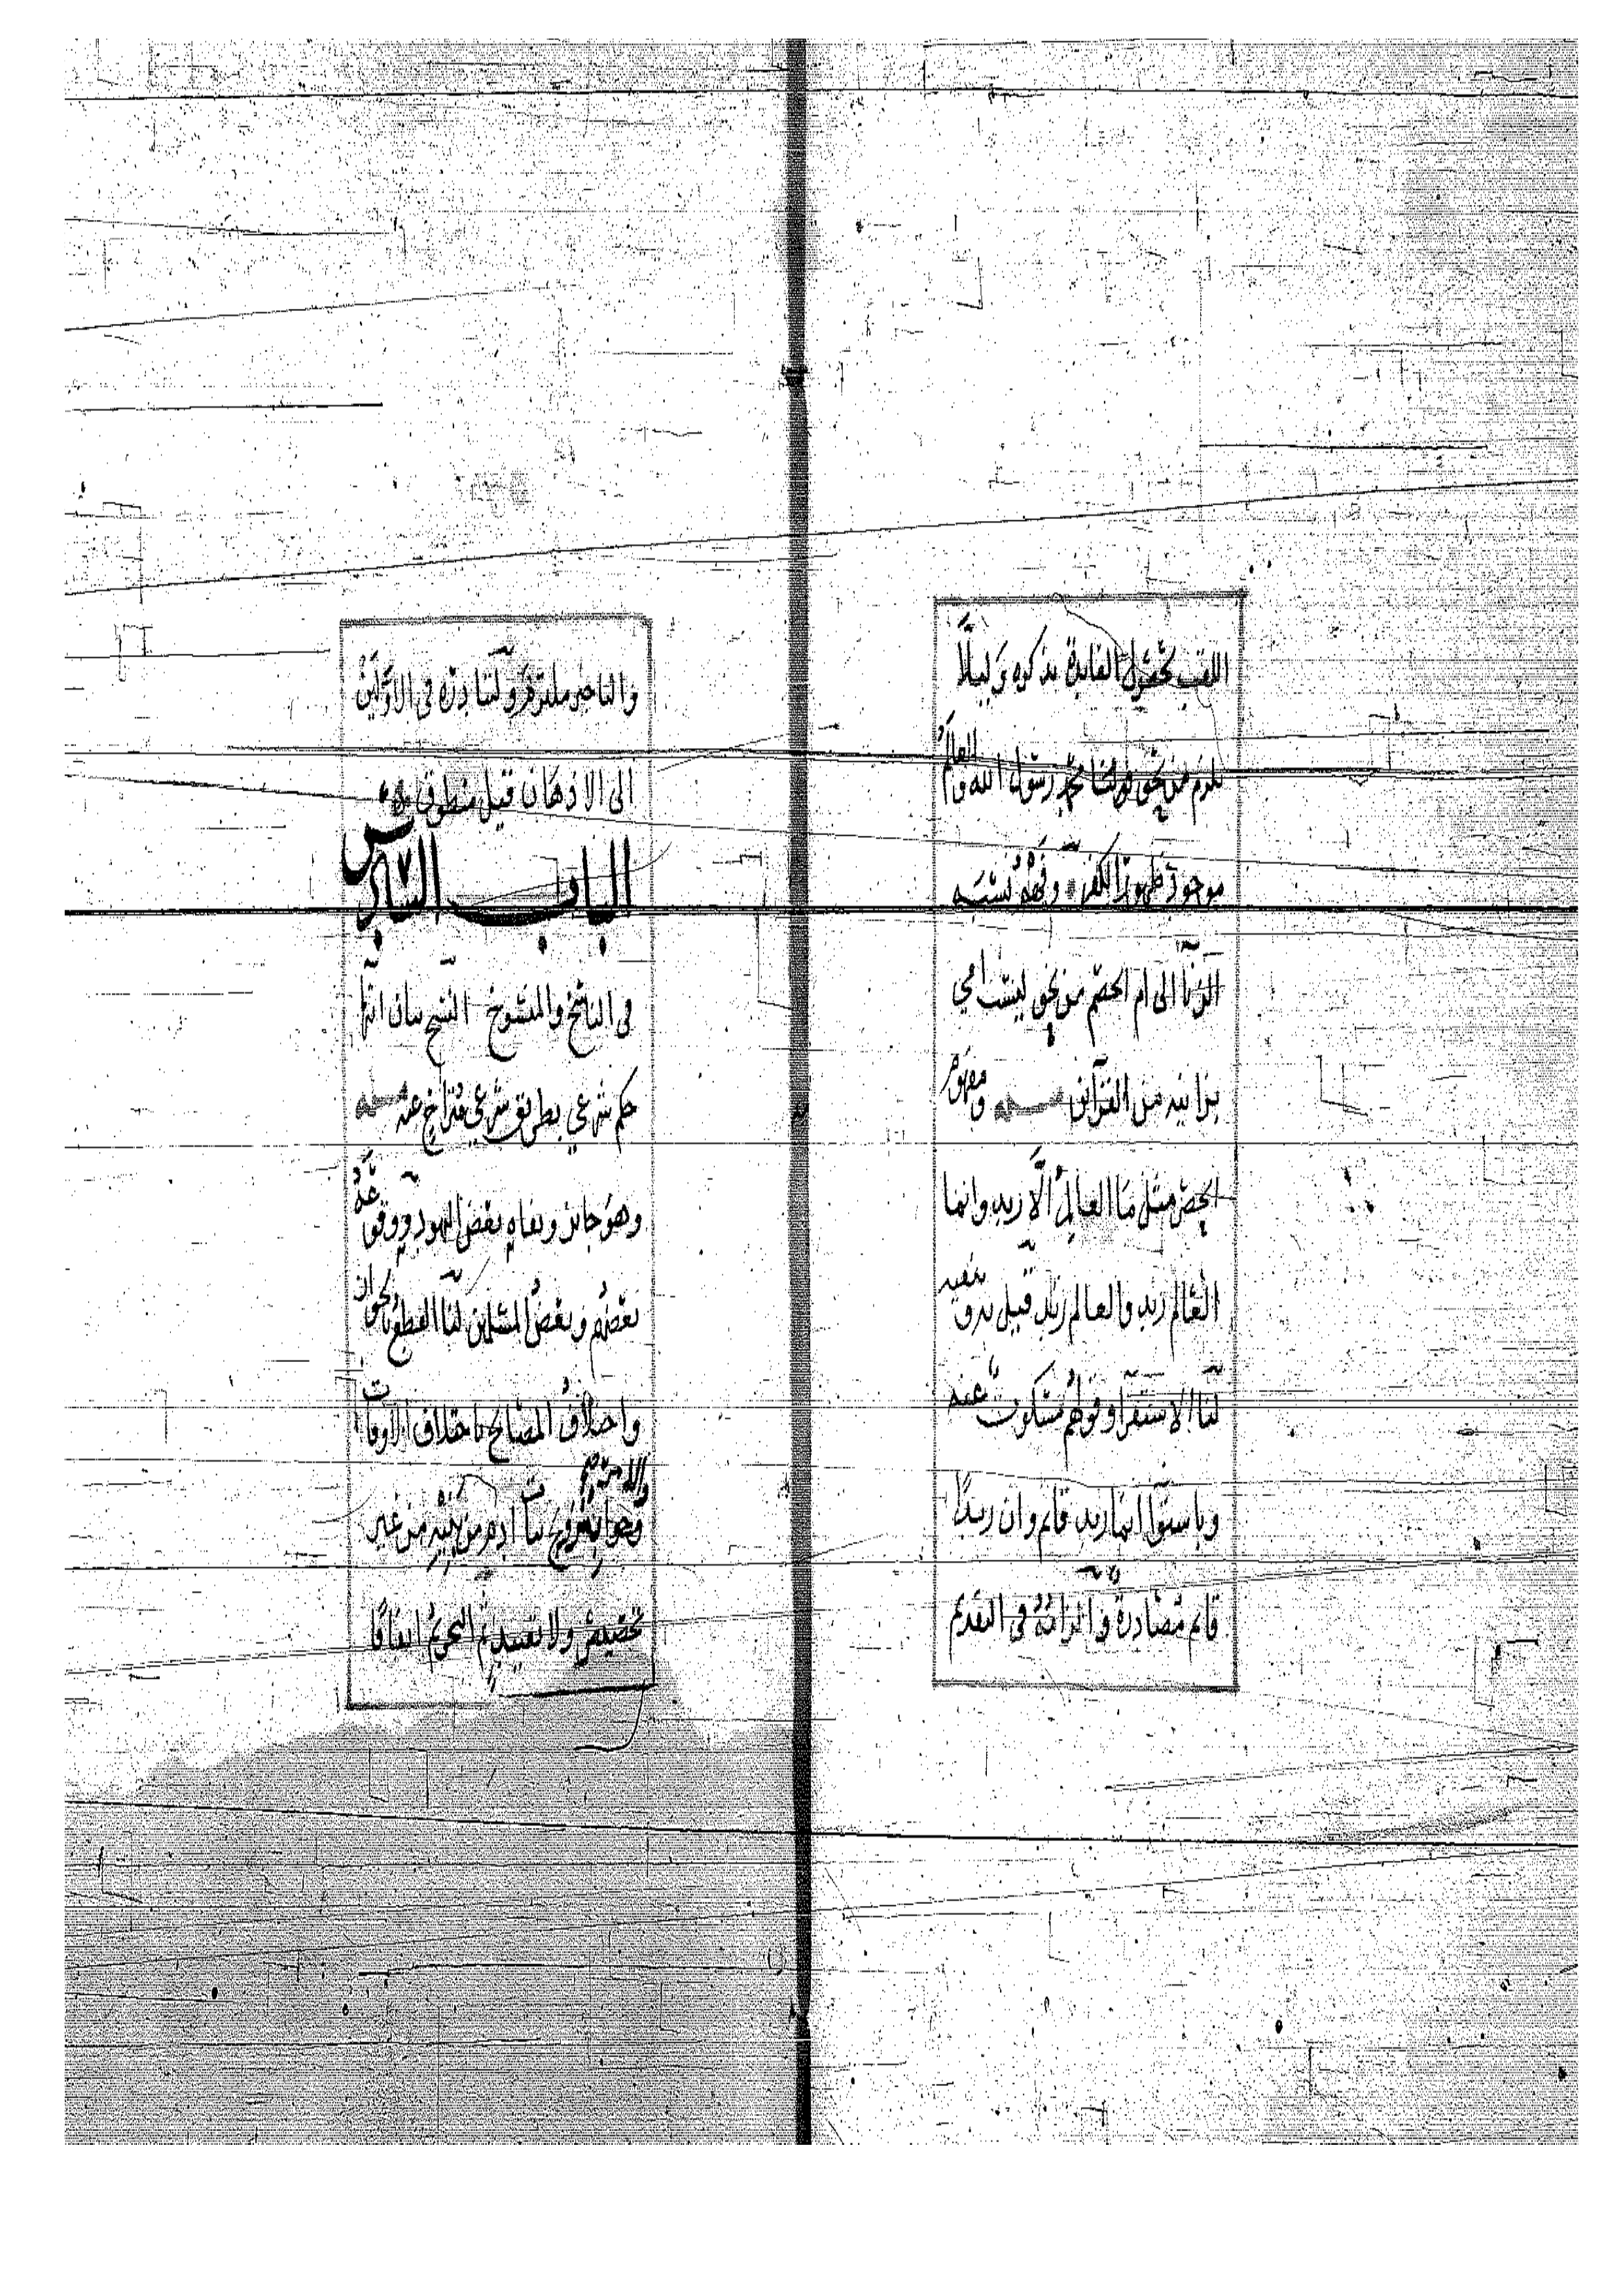 اللقب لحصول الفايدة بذكره وليلا
يلزم من نحو قولنا محمد رسول الله والعالم
موجود ظهورا لكفر وفهم نسبه
الزنا الى ام الخصم من نحو ليست امي
بزانيه من القرآين مسئله ومفهوم
الحصر مثل ما العالم الا زيد وانما
العالم زيد والعالم زيد قيل يفيد
لنا الاستقرا وقولهم مسكوت عنه
وباستوا انما زيد قايم وان زيدا
قايم مصادرة والتزامه في التقديم
والتاخير ملتزم ولتبادره في الاولين
الى الاذهان قيل منطوق
الباب السادس
في الناسخ والمنسوخ النسخ بيان انتها
حكم شرعي بطريق شرعي متراخ عنه مسئله
وهو جايز ونفاه بعض اليهود ووقوعه
بعضهم وبعض المسلمين لنا القطع بالجواز
واختلاف المصالح باختلاف الاوقات
بنات ادم من بنيه من غير
تخصيص ولا تقييد ثم التحريم اتفاقا